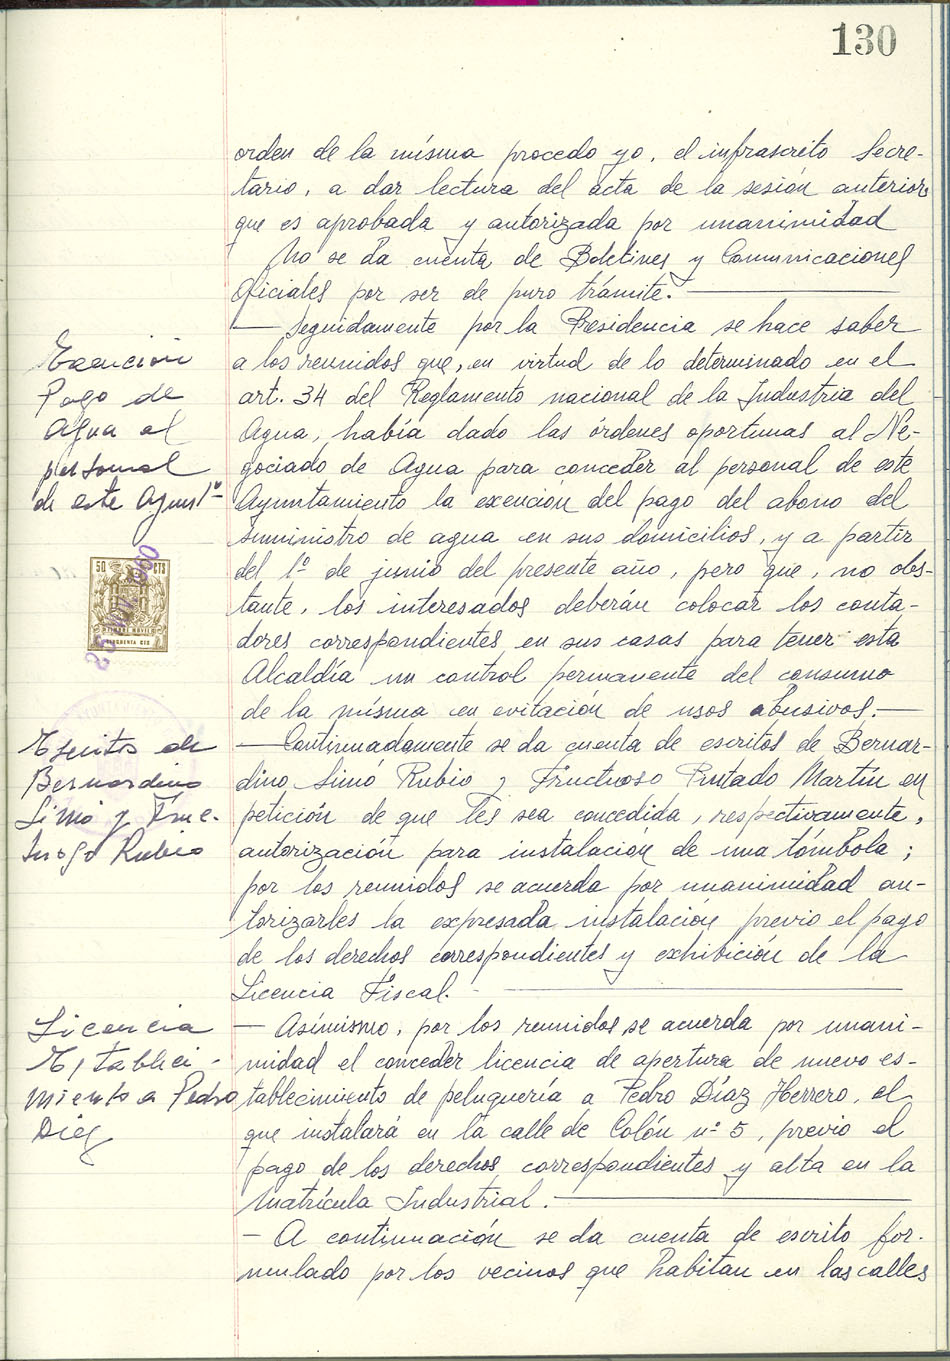 130
orden de la mísma procedo yo, el infrascrito Secre-
tario, a dar lectura del acta de la sesión anterior
que es aprobada y autorizada por unanimidad
No se da cuenta de Boletines y Comunicaciones
Oficiales por ser de puro trámite.
Exención
Pago de
Agua al
personal
de este Ayunt-º
— Seguidamente por la Presidencia se hace saber
a los reunidos que, en virtud de lo determinado en el
art. 34 del Reglamento nacional de la Industria del
Agua, había dado las órdenes oportunas al Ne-
gociado de Agua para conceder al personal de este
Ayuntamiento la exención del pago del abono del
suministro de agua en sus domicilios, y a partir
del 1º de junio del presente año, pero que, no obs-
tante, los interesados deberán colocar los conta-
dores correspondientes en sus casas para tener esta
Alcaldía un control permanente del consumo
de la mísma en evitación de usos abusivos.—
50 CTS
Escritos de
Bernardino
Simó y Fruc-
tuoso Rubio
— Continuadamente se da cuenta de escritos de Bernar-
dino Simó Rubio y Fructuoso Hurtado Martín en
petición de que les sea concedida, respectivamente,
autorización para instalación de una tómbola;
por los reunidos se acuerda por unanimidad au-
torizarles la expresada instalación previo el pago
de los derechos correspondientes y exhibición de la
Licencia Fiscal.
Licencia
Estableci-
miento a Pedro
Díez
— Asímismo, por los reunidos, se acuerda por unani-
midad el conceder licencia de apertura de nuevo es-
tablecimiento de peluquería a Pedro Díaz Herrero, el
que instalará en la calle de Colón nº 5, previo el
pago de los derechos correspondientes y alta en la
Matrícula Industrial.
— A continuación se da cuenta de escrito for-
mulado por los vecinos que habitan en las calles